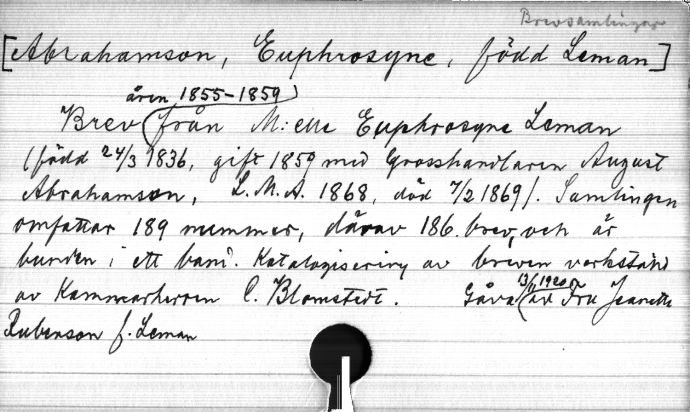 Brevsamlingar
[Abrahamson, Euphrosyne, född Leman]
åren 1855-1859
Brev från M:elle Euphrosyne Leman
(född 24/3 1836, gift 1859 med Grosshandlaren August
Abrahamson, L.M.A. 1868, död 7/2 1869). Samlingen
omfattar 189 nummer, därav 186 brev, och är
bunden i ett band. Katalogisering av breven verkställd
av Kammarherren C. Blomstedt. Gåva 13/11 1920 av Fru Jeanette
Rubenson f. Leman